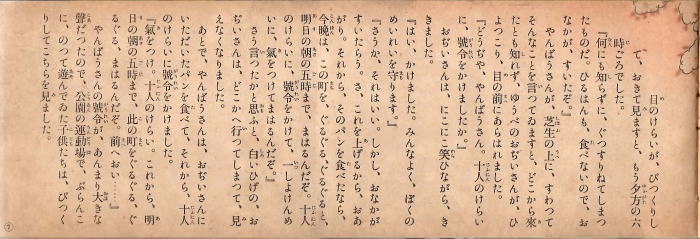 目のけらいが、びつくりし
て、おきて見ますと、もう夕方の六
時ごろでした。
『何にも知らずに、ぐつすりねてしまつ
たものだ。ひるはんも、食べないので、お
なかが、すいたぞ。』
やんばうさんが、芝生の上に、すわつて
そんなことを言つてゐますと、どこから來
たとも知れず、ゆうべのおぢいさんが、ひ
よつこり、目の前にあらはれました。
『どうぢや、やんばうさん。十人のけらい
に、號令をかけましたか。』
おぢいさんは、にこにこ笑ひながら、き
きました。
『はい、かけました。みんなよく、ぼくの
めいれいを守ります。』
『さうか、それはいい。しかし、おなかが
すいたらう。さ、これを上げるから、おあ
がり。それから、そのパンを食べたなら、
今晩は、この町を、ぐるぐる、ぐるぐると、
明日の朝の五時まで、まはるんだぞ。十人
のけらいに、號令をかけて、一しよけんめ
いに、氣をつけてまはるんだぞ。』
さう言つたかと思ふと、白いひげの、お
ぢいさんは、どこかへ行つてしまつて、見
えなくなりました。
あとで、やんばうさんは、おぢいさんに
いただいたパンを食べて、それから、十人
のけらいに號令をかけました。
『氣をつけ。十人のけらい。これから、明
日の朝の五時まで、此の町をぐるぐる、ぐ
るぐる、まはるんだぞ。前へおい……』
やんばうさんの號令が、あんまり大きな
聲だつたので、公園の運動場で、ぶらんこ
に、のつて遊んでゐた子供たちは、びつく
りしてこちらを見ました。
⑦